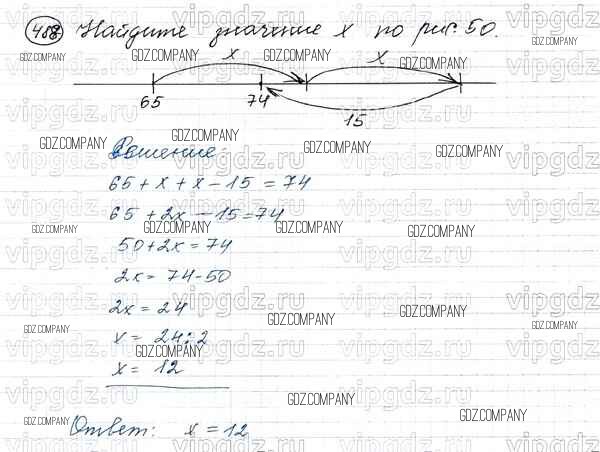 488 Найдите значение x по рис. 50.
x x
65 74
15
Решение:
65 + x + x - 15 = 74
65 + 2x - 15 = 74
50 + 2x = 74
2x = 74 - 50
2x = 24
x = 24 : 2
x = 12
Ответ: x = 12